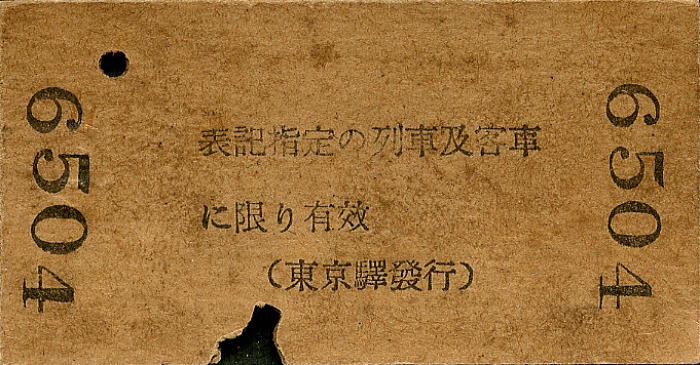 6504
表記指定の列車及客車
に限り有效
(東京驛發行)
6504